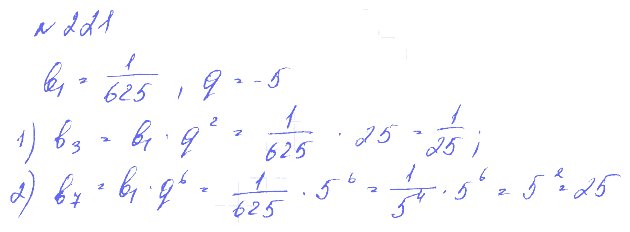 № 221
b₁ = 1/625, q = -5
1) b₃ = b₁ · q² = 1/625 · 25 = 1/25;
2) b₇ = b₁ · q⁶ = 1/625 · 5⁶ = 1/5⁴ · 5⁶ = 5² = 25